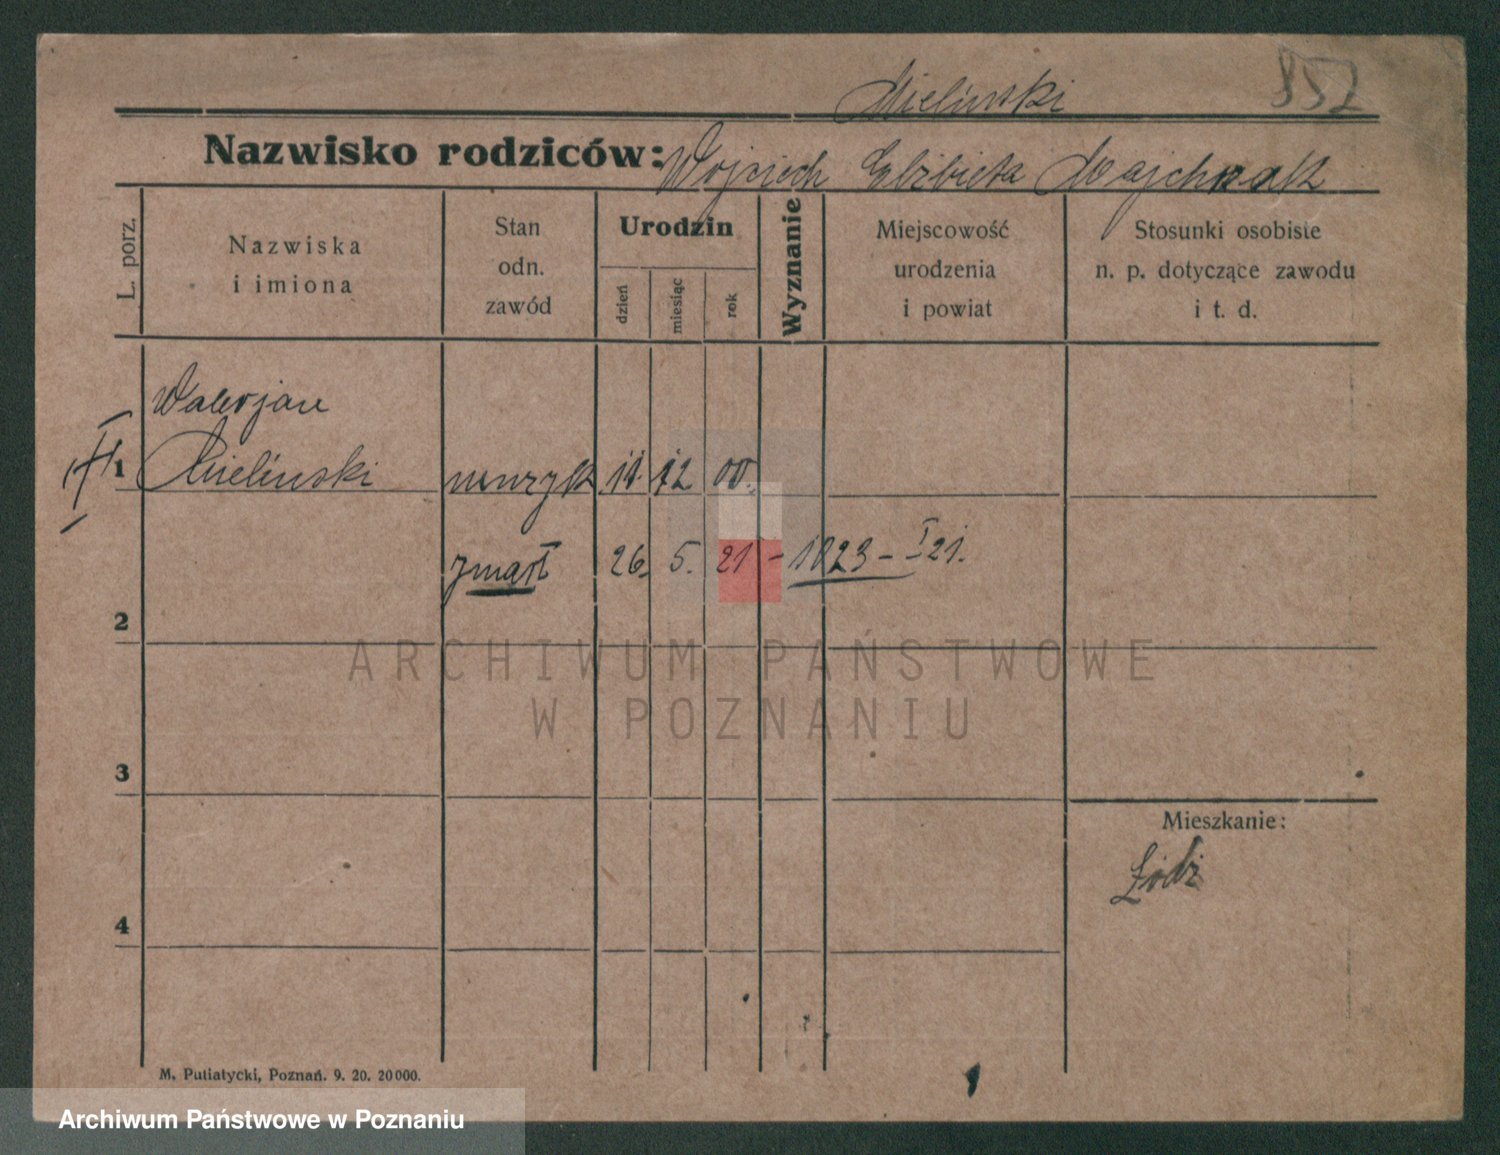 852
Mieliński
Nazwisko rodziców: Wojciech Elżbieta Majchrzak
L. porz.
Nazwiska
i imiona
Stan
odn.
zawód
Urodzin
dzień
miesiąc
rok
Wyznanie
Miejscowość
urodzenia
i powiat
Stosunki osobiste
n. p. dotyczące zawodu
i t. d.
Walerjan
1 Mieliński 12 00.
zmarł 26. 5. 21 - 1823 - I 21.
2
ARCHIWUM PAŃSTWOWE
W POZNANIU
3
Mieszkanie:
Łódź
4
M. Putiatycki, Poznań. 9. 20. 20000.
Archiwum Państwowe w Poznaniu